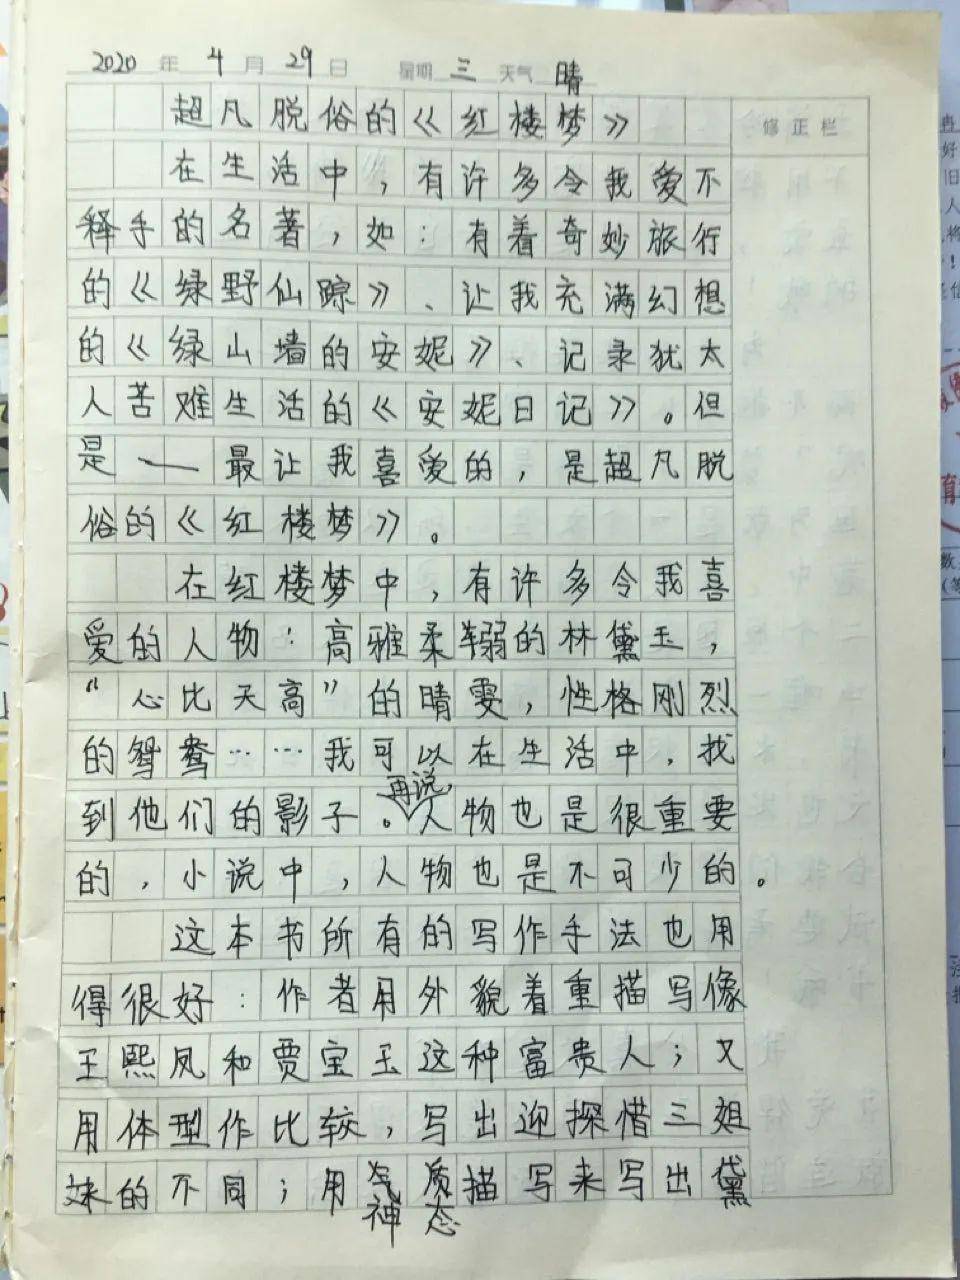 2020年4月29日 星期三 天气晴
超凡脱俗的《红楼梦》
修正栏
在生活中，有许多令我爱不
释手的名著，如：有着奇妙旅行
的《绿野仙踪》、让我充满幻想
的《绿山墙的安妮》、记录犹太
人苦难生活的《安妮日记》。但
是——最让我喜爱的，是超凡脱
俗的《红楼梦》。
在红楼梦中，有许多令我喜
爱的人物：高雅柔弱的林黛玉，
“心比天高”的晴雯，性格刚烈
的鸳鸯……我可以在生活中，找
到他们的影子。再说，人物也是很重要
的，小说中，人物也是不可少的。
这本书所有的写作手法也用
得很好：作者用外貌着重描写像
王熙凤和贾宝玉这种富贵人；又
用体型作比较，写出迎探惜三姐
妹的不同；用气质神态描写来写出黛